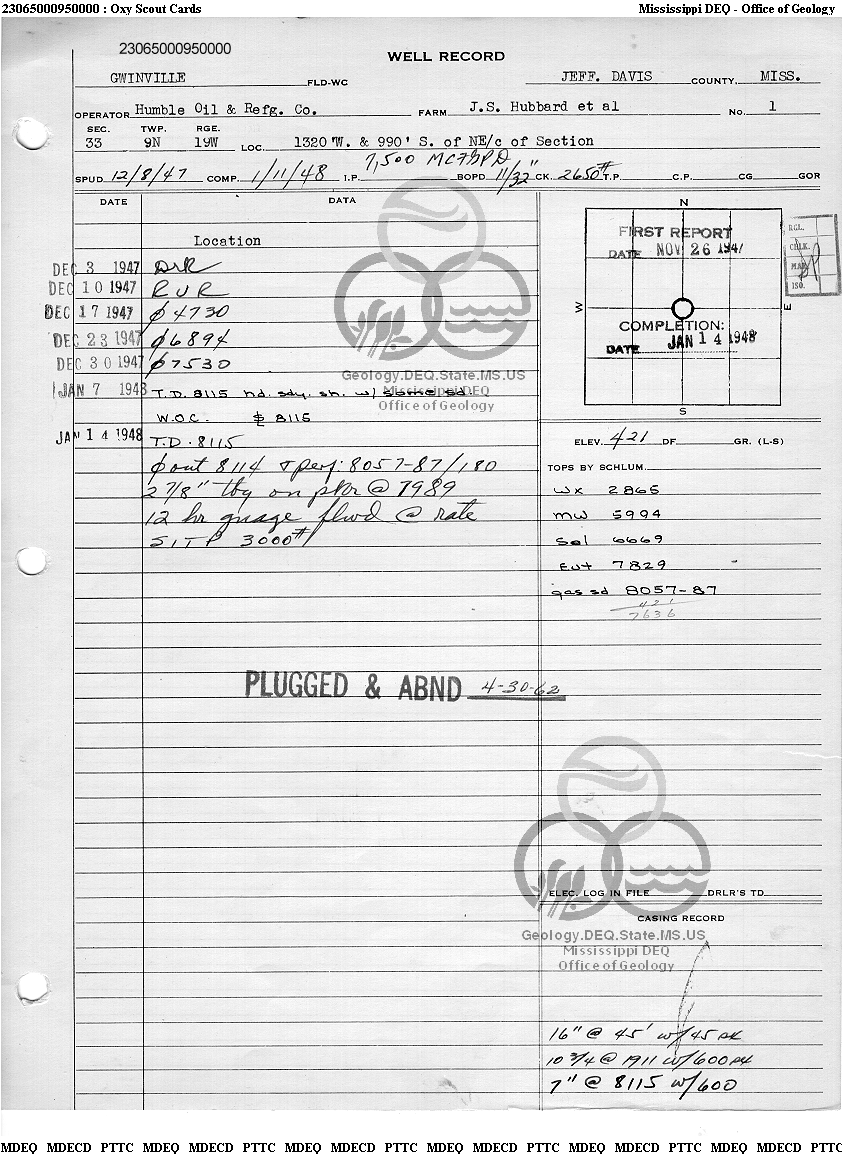 23065000950000 : Oxy Scout Cards Mississippi DEQ - Office of Geology
23065000950000
WELL RECORD
GWINVILLE FLD-WC JEFF. DAVIS COUNTY, MISS.
OPERATOR Humble Oil & Refg. Co. FARM J.S. Hubbard et al No. 1
SEC. TWP. RGE.
33 9N 19W LOC. 1320 'W. & 990' S. of NE/c of Section
SPUD 12/8/47 COMP. 1/11/48 I.P. 7,500 MCFGPD BOPD 11/32" CK. 2650# T.P. C.P. CG GOR
DATE DATA N
Location
FIRST REPORT
DATE NOV 26 1947
RGL.
CHLK.
MAP
ISO.
DEC 3 1947 DrR
DEC 10 1947 RUR
DEC 17 1947 ϕ 4730
W E
COMPLETION:
DATE JAN 14 1948
DEC 23 1947 ϕ 6894
DEC 30 1947 ϕ 7530
Geology.DEQ.State.MS.US
Mississippi DEQ
Office of Geology
JAN 7 1948 T.D. 8115 hd. sdy. sh. w/ some sd.
W.O.C. 8115
S
JAN 14 1948 T.D. 8115
ELEV. 421 DF. GR. (L-S)
ϕ out 8114 & perf: 8057-87/180
TOPS BY SCHLUM.
2 7/8" tbg on pkr @ 7989
Wx 2865
12 hr guage flwd @ rate
MW 5994
SITP 3000#
Sel 6669
Eut 7829
gas sd 8057-87
421
7636
PLUGGED & ABND 4-30-62
ELEC. LOG IN FILE DRLR'S TD
CASING RECORD
Geology.DEQ.State.MS.US
Mississippi DEQ
Office of Geology
16" @ 45' w/45 sx
10 3/4 @ 1911 w/600 sx
7" @ 8115 w/600
MDEQ MDECD PTTC MDEQ MDECD PTTC MDEQ MDECD PTTC MDEQ MDECD PTTC MDEQ MDECD PTTC MDEQ MDECD PTTC